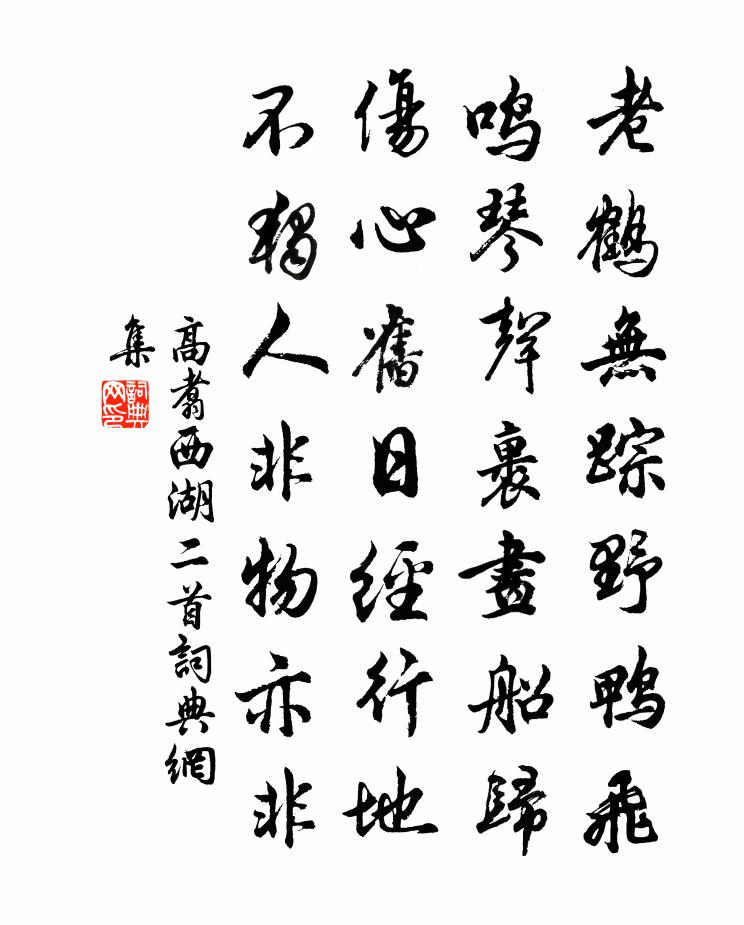 老鶴無踪野鴨飛
鳴琴聲裏畫船歸
傷心舊日經行地
不獨人非物亦非
高翥西湖二首詞典網
集
詞典
网印